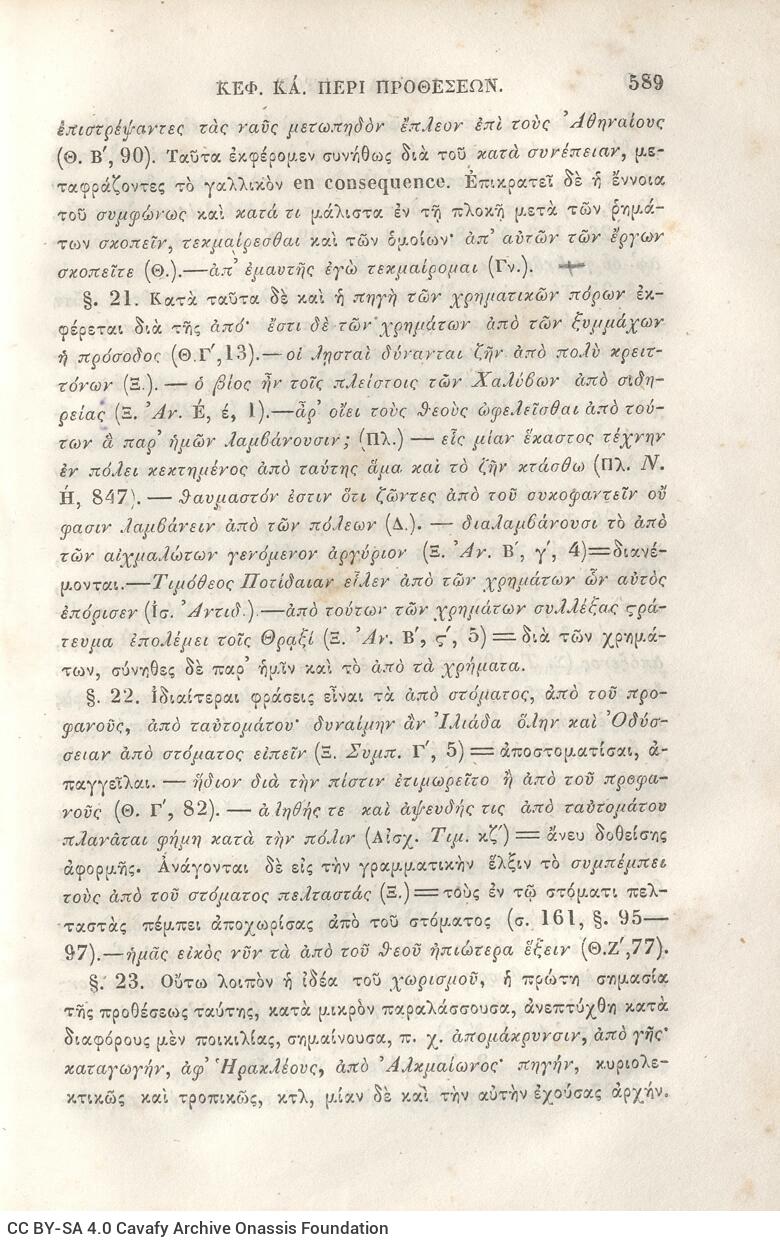 ΚΕΦ. ΚΑ΄. ΠΕΡΙ ΠΡΟΘΕΣΕΩΝ. 589
ἐπιστρέψαντες τὰς ναῦς μετωπηδὸν ἔπλεον ἐπὶ τοὺς Ἀθηναίους
(Θ. Β΄, 90). Ταῦτα ἐκφέρομεν συνήθως διὰ τοῦ κατὰ συνέπειαν, με-
ταφράζοντες τὸ γαλλικὸν en consequence. Ἐπικρατεῖ δὲ ἡ ἔννοια
τοῦ συμφώνως καὶ κατά τι μάλιστα ἐν τῇ πλοκῇ μετὰ τῶν ῥημά-
των σκοπεῖν, τεκμαίρεσθαι καὶ τῶν ὁμοίων· ἀπ' αὐτῶν τῶν ἔργων
σκοπεῖτε (Θ.).—ἀπ' ἐμαυτῆς ἐγὼ τεκμαίρομαι (Γν.).
§. 21. Κατὰ ταῦτα δὲ καὶ ἡ πηγὴ τῶν χρηματικῶν πόρων ἐκ-
φέρεται διὰ τῆς ἀπό· ἔστι δὲ τῶν χρημάτων ἀπὸ τῶν ξυμμάχων
ἡ πρόσοδος (Θ.Γ΄,13).—οἱ λῃσταὶ δύνανται ζῆν ἀπὸ πολὺ κρειτ-
τόνων (Ξ.). — ὁ βίος ἦν τοῖς πλείστοις τῶν Χαλύβων ἀπὸ σιδη-
ρείας (Ξ. Ἀν. Ε΄, έ, 1).—ἆρ' οἴει τοὺς θεοὺς ὠφελεῖσθαι ἀπὸ τού-
των ἃ παρ' ἡμῶν λαμβάνουσιν; (Πλ.) — εἷς μίαν ἕκαστος τέχνην
ἐν πόλει κεκτημένος ἀπὸ ταύτης ἅμα καὶ τὸ ζῆν κτάσθω (Πλ. Ν.
Η΄, 847). — θαυμαστόν ἐστιν ὅτι ζῶντες ἀπὸ τοῦ συκοφαντεῖν οὔ
φασιν λαμβάνειν ἀπὸ τῶν πόλεων (Δ.). — διαλαμβάνουσι τὸ ἀπὸ
τῶν αἰχμαλώτων γενόμενον ἀργύριον (Ξ. Ἀν. Β΄, γ΄, 4)=διανέ-
μονται.—Τιμόθεος Ποτίδαιαν εἷλεν ἀπὸ τῶν χρημάτων ὧν αὐτὸς
ἐπόρισεν (Ἰσ. Ἀντιδ.).—ἀπὸ τούτων τῶν χρημάτων συλλέξας στρά-
τευμα ἐπολέμει τοῖς Θρᾳξί (Ξ. Ἀν. Β΄, ϛ΄, 5) = διὰ τῶν χρημά-
των, σύνηθες δὲ παρ' ἡμῖν καὶ τὸ ἀπὸ τὰ χρήματα.
§. 22. Ἰδιαίτεραι φράσεις εἶναι τὰ ἀπὸ στόματος, ἀπὸ τοῦ προ-
φανοῦς, ἀπὸ ταὐτομάτου· δυναίμην ἂν Ἰλιάδα ὅλην καὶ Ὀδύσ-
σειαν ἀπὸ στόματος εἰπεῖν (Ξ. Συμπ. Γ΄, 5) = ἀποστοματίσαι, ἀ-
παγγεῖλαι. — ἥδιον διὰ τὴν πίστιν ἐτιμωρεῖτο ἢ ἀπὸ τοῦ προφα-
νοῦς (Θ. Γ΄, 82). — ἀληθής τε καὶ ἀψευδής τις ἀπὸ ταὐτομάτου
πλανᾶται φήμη κατὰ τὴν πόλιν (Αἰσχ. Τιμ. κζ΄) = ἄνευ δοθείσης
ἀφορμῆς. Ἀνάγονται δὲ εἰς τὴν γραμματικὴν ἕλξιν τὸ συμπέμπει
τοὺς ἀπὸ τοῦ στόματος πελταστάς (Ξ.)=τοὺς ἐν τῷ στόματι πελ-
ταστὰς πέμπει ἀποχωρίσας ἀπὸ τοῦ στόματος (σ. 161, §. 95—
97).—ἡμᾶς εἰκὸς νῦν τὰ ἀπὸ τοῦ θεοῦ ἠπιώτερα ἕξειν (Θ.Ζ΄,77).
§. 23. Οὕτω λοιπὸν ἡ ἰδέα τοῦ χωρισμοῦ, ἡ πρώτη σημασία
τῆς προθέσεως ταύτης, κατὰ μικρὸν παραλάσσουσα, ἀνεπτύχθη κατὰ
διαφόρους μὲν ποικιλίας, σημαίνουσα, π. χ. ἀπομάκρυνσιν, ἀπὸ γῆς·
καταγωγήν, ἀφ' Ἡρακλέους, ἀπὸ Ἀλκμαίωνος· πηγήν, κυριολε-
κτικῶς καὶ τροπικῶς, κτλ, μίαν δὲ καὶ τὴν αὐτὴν ἐχούσας ἀρχήν.
CC BY-SA 4.0 Cavafy Archive Onassis Foundation